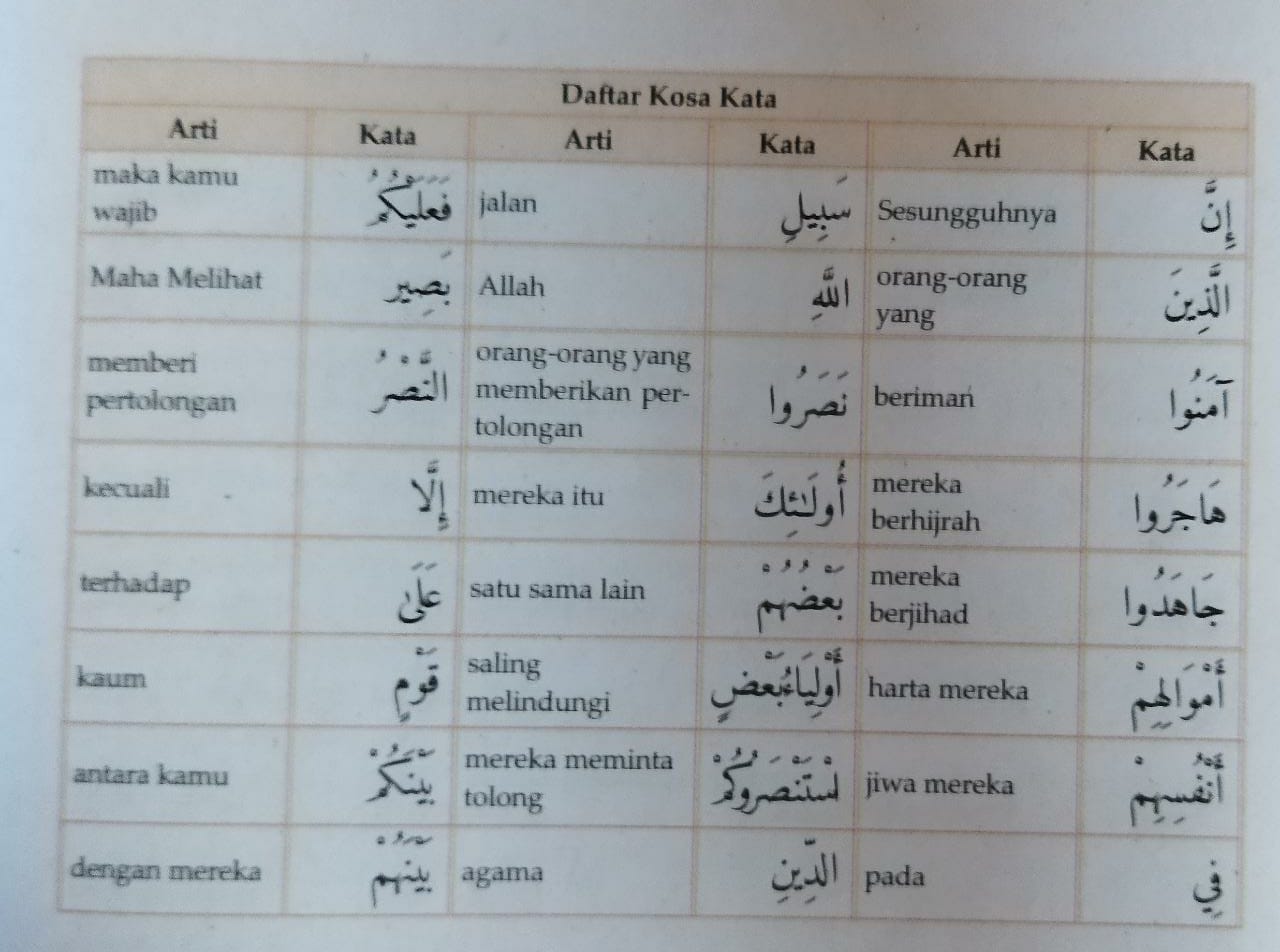 Daftar Kosa Kata
Arti Kata Arti Kata Arti Kata
maka kamu
wajib
فَعَلَيْكُمُ
jalan
سَبِيلِ
Sesungguhnya
إِنَّ
Maha Melihat
بَصِير
Allah
اللَّهِ
orang-orang
yang
الَّذِينَ
memberi
pertolongan
النَّصْرُ
orang-orang yang
memberikan per-
tolongan
نَصَرُوا
beriman
آمَنُوا
kecuali
إِلَّا
mereka itu
أُولَـٰئِكَ
mereka
berhijrah
هَاجَرُوا
terhadap
عَلَىٰ
satu sama lain
بَعْضُهُمْ
mereka
berjihad
جَاهَدُوا
kaum
قَوْمٍ
saling
melindungi
أَوْلِيَاءُبَعْضٍ
harta mereka
أَمْوَالِهِمْ
antara kamu
بَيْنَكُمْ
mereka meminta
tolong
اسْتَنْصَرُوكُمْ
jiwa mereka
أَنْفُسِهِمْ
dengan mereka
بَيْنَهُمْ
agama
الدِّينِ
pada
فِي